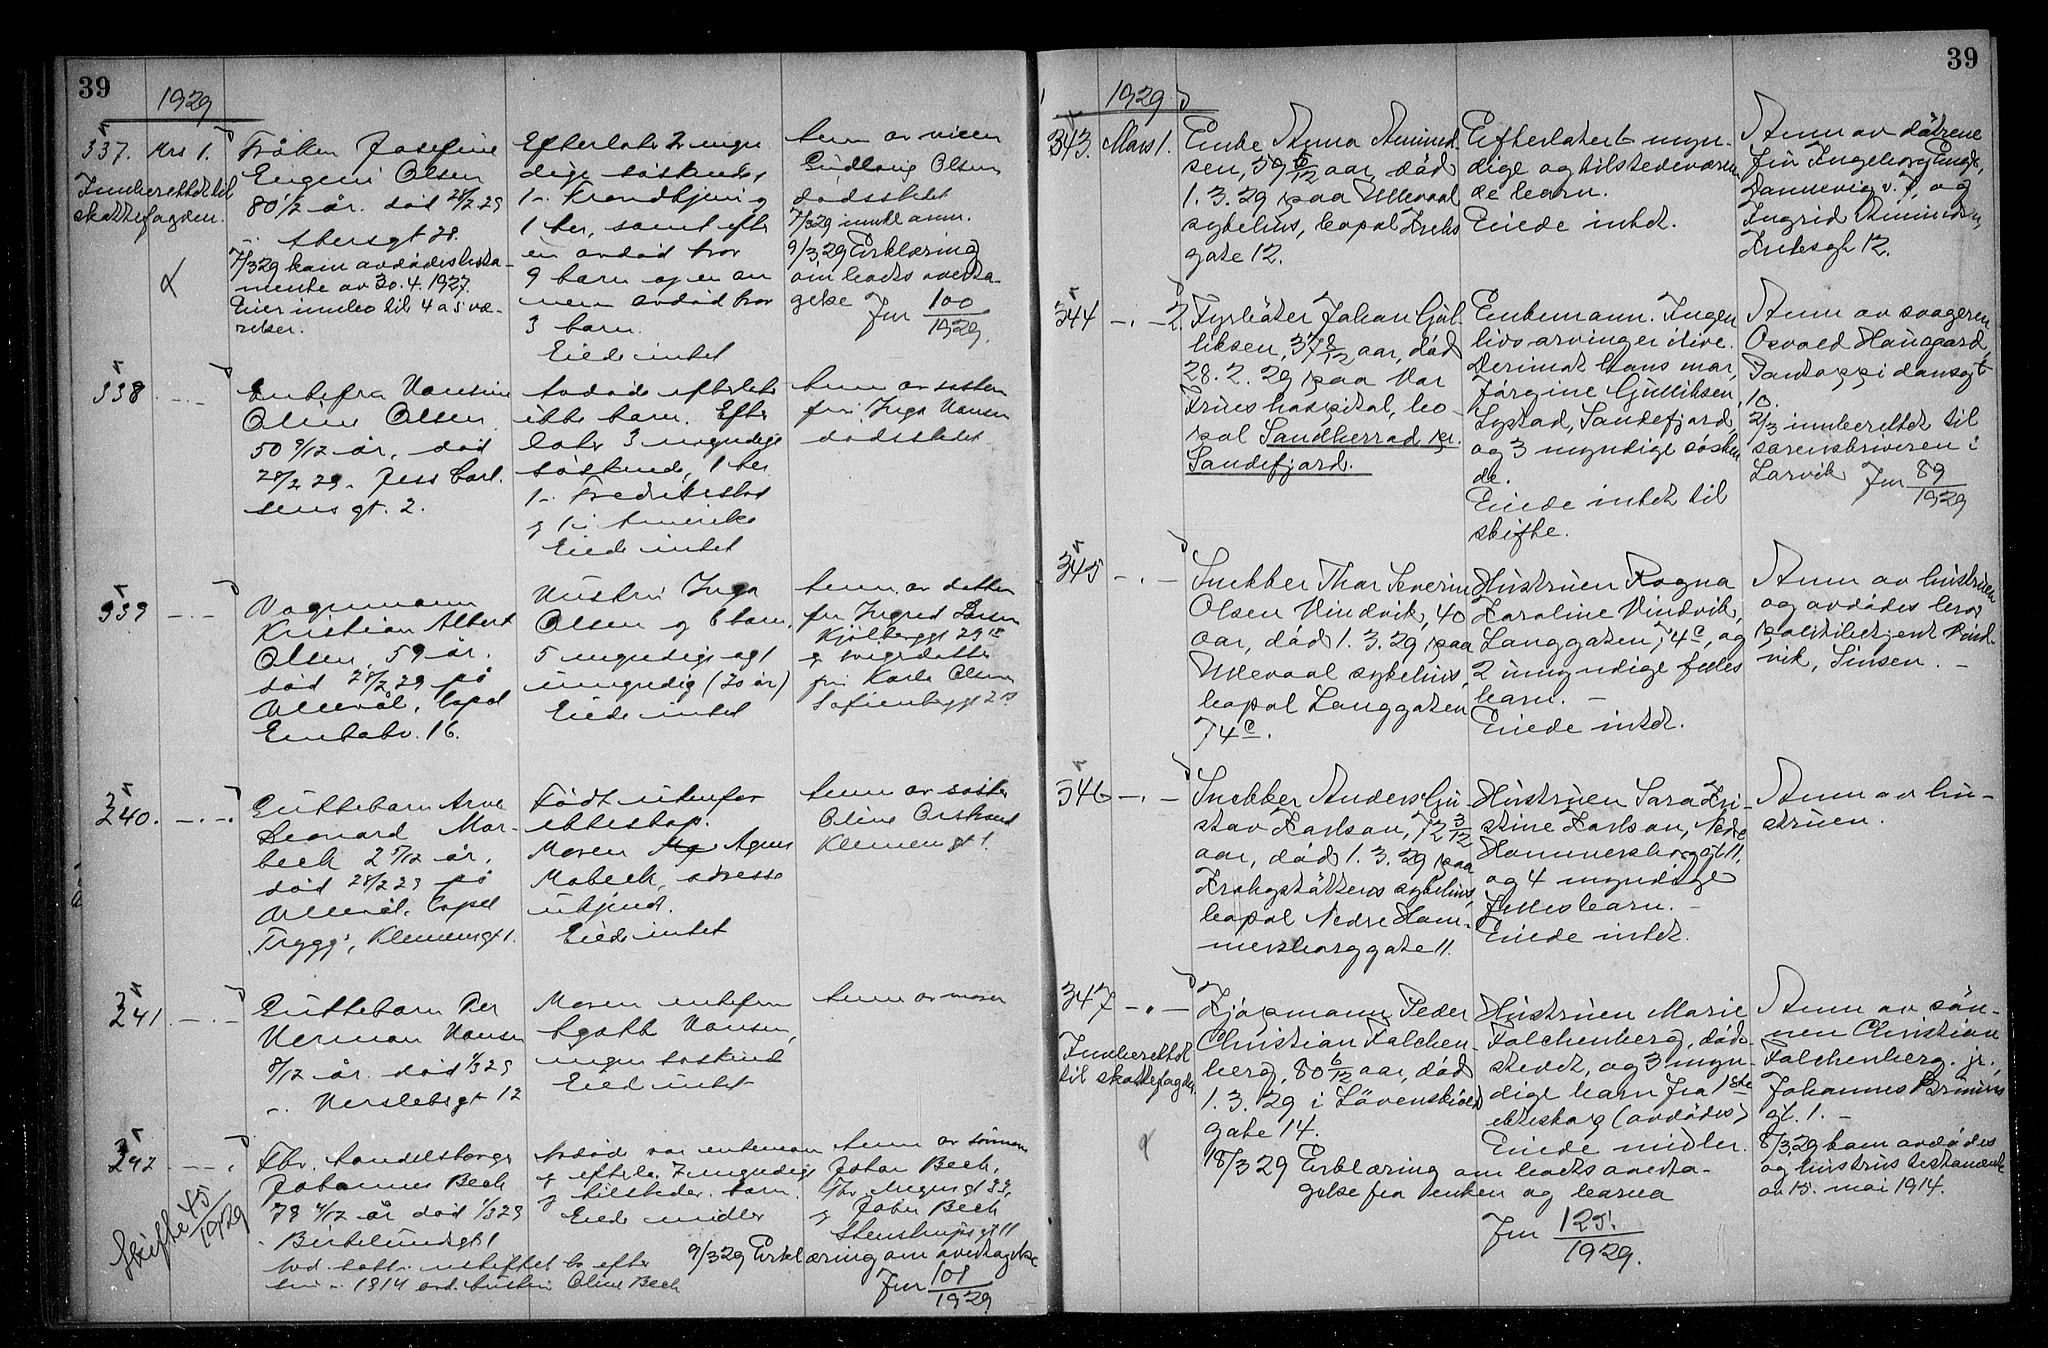 39
1929
337. Mrs 1.
Innberettet til
skattefogden.
Frøken Josefine
Eugeni Olsen
80 1/2 år. død 28/2 29
Akersgt 28.
7/3 29 kom avdødes testa-
mente av 30.4.1927.
Eier innbo til 4 a 5 væ-
relser.
Efterlater 2 myn
dige søskende
1 i Trondhjem og
1 her, samt efter
en avdød bror
9 barn og en an
nen avdød bror
3 barn.
Eiede intet
Anm av niesen
Gudlaug Olsen
dødsstedet
7/3 29 innkl anm.
9/3 29 Erklæring
om boets overta-
gelse Jnr 100/1929.
338 — " —
Enkefru Hansine
Oline Olsen
50 9/12 år, død
28/2 29. Jess Carl-
sens gt. 2.
Avdøde efterlater
ikke barn. Efter
later 3 myndige
søskende, 1 her
1 i Fredrikstad
og 1 i Amerika
Eiede intet
Anm av søsteren
fru Inga Hansen
dødsstedet
339 — " —
Vognmann
Kristian Albert
Olsen, 59 år.
død 28/2 29 på
Ullevål, bopel
Enebakv. 16.
Hustru Inga
Olsen og 6 barn.
5 myndige og 1
umyndig (20 år)
Eiede intet
Anm. av datter
fru Ingrid
Kjølberggt 29
og svigerdatter
fru Karla Olsen
Sofienberggt 2
340. — " —
Guttebarn Arne
Leonard Mor-
bech 2 5/12 år,
død 28/2 29 på
Ullevål. bopel
"Trygg", Klemensgt 1.
Født utenfor
ekteskap.
Moren Agnes
Mobech, adresse
ukjent.
Eiede intet
Anm av søster
Oline
Klemensgt 1.
341. — " —
Guttebarn Per
Herman Hansen
8/12 år. død 1/3 29
Herslebsgt 12
Moren enkefru
Agath Hansen,
ingen søskende
Eiede intet
Anm av moren
342 — " —
Fhv. handelsborger
Johannes Bech
79 4/12 år død 1/3 29
Birkelundsgt 1
Skifte 45/1929
Avdød var enkemann
og efterla. 7 myndige
og tilstedev. barn.
Eiede midler
Anm av sønnen
Johan Bech,
Thv. Meyersgt 33,
og John Bech
Stenstrupsgt 11
Avd. satt i uskiftet bo efter
sin i 1914 avd. hustru Oline Bech
9/3 29 Erklæring om overtagelse
Jnr 101/1929
39
1929
343. Mars 1.
Enke Anna Amund-
sen, 59 6/12 aar, død
1.3.29 paa Ullevaal
sykehus, bopæl Krebs
gate 12.
Efterlater 6 myn-
dige og tilstedeværen
de barn.
Eiede intet.
Anm av døtrene
fru Ingeborg Engh,
Dannevig v. 7, og
Ingrid Amundsen,
Krebsgt 12.
344 — " — 2.
Fyrbøter Johan Gul-
liksen, 37 8/12 aar, død
28.2.29 paa Vor
Frues hospital, bo-
pæl Sandherrad pr.
Sandefjord.
Enkemann. Ingen
livsarvinger ilive.
Derimot hans mor,
Jørgine Gulliksen,
Lystad, Sandefjord
og 3 myndige søsken
de.
Eiede intet til
skifte.
Anm av svogeren
Osvald Haugaard,
Pantoppidansgt
10.
2/3 innberettet til
sorenskriveren i
Larvik Jnr 89/1929
345 — " —
Snekker Thor Severin
Olsen Vindvik, 40
aar, død 1.3.29 paa
Ullevaal sykehus,
bopæl Langgaten
74 c.
Hustruen Ragna
Karoline Vindvik,
Langgaten 74 c, og
2 umyndige felles
barn. —
Eiede intet.
Anm av hustruen
og avdødes bror
politibetjent Vind-
vik, Sinsen. —
346 — " —
Snekker Anders Gu-
stav Karlson, 72 3/12
aar, død 1.3.29 paa
Krohgstøttens sykehus,
bopæl Nedre Ham-
mersborggate 11.
Hustruen Sara Kri-
stine Karlson, Nedre
Hammersborggt 11,
og 4 myndige
fellesbarn. —
Eiede intet.
Anm av hu-
struen.
347 — " —
Innberettet
til skattefogden
Kjøpmann Peder
Christian Falchen-
berg, 80 6/12 aar, død
1.3.29 i Løvenskiold
gate 14.
Hustruen Marie
Falchenberg, døds-
stedet, og 3 myn-
dige barn fra 1ste
ekteskap (avdødes)
Eiede midler.
18/3 29 Erklæring om boets overta-
gelse fra enken og barna
Jnr 125/1929.
Anm av søn-
nen Christian
Falchenberg. jr.,
Johannes Bruuns
gt. 1. —
8/3 29 kom avdødes
og hustrus testamente
av 15. mai 1914.